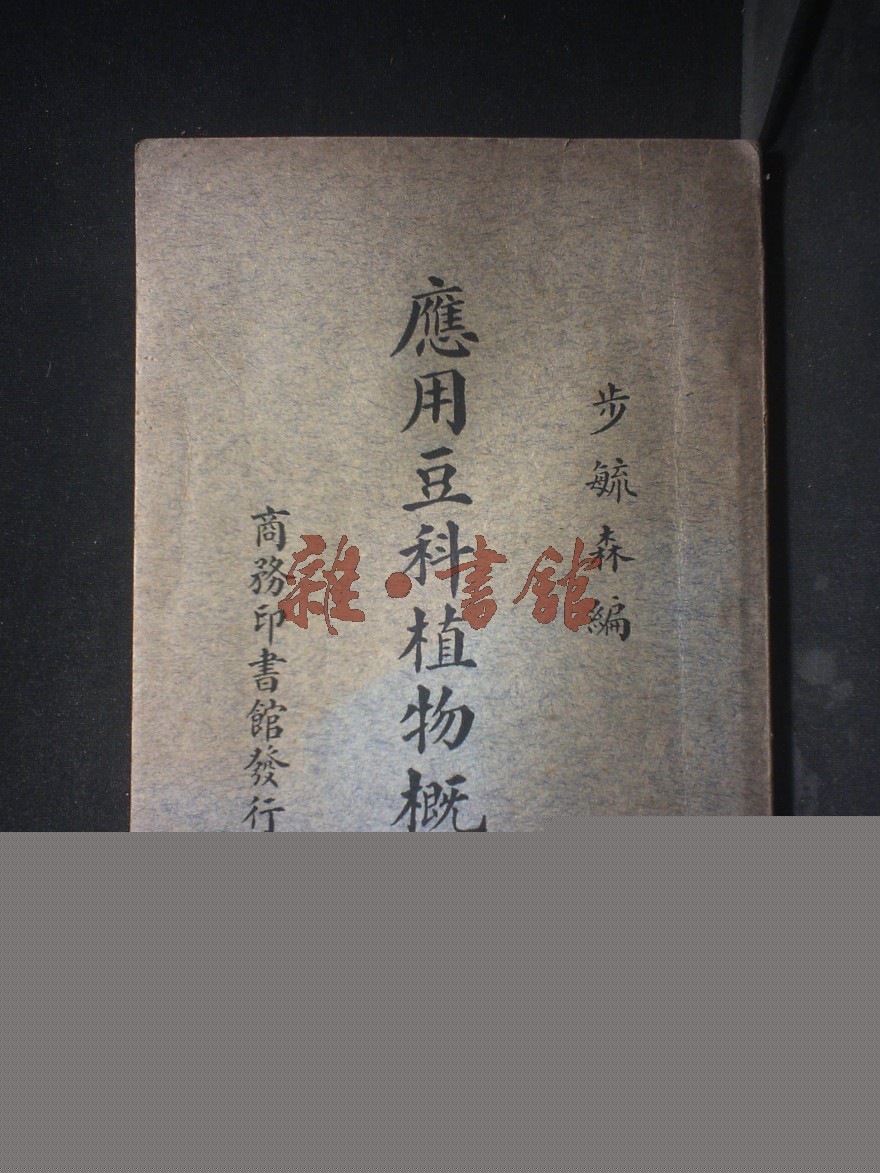 步毓森編
應用豆科植物概
商務印書館發行
雜·書館